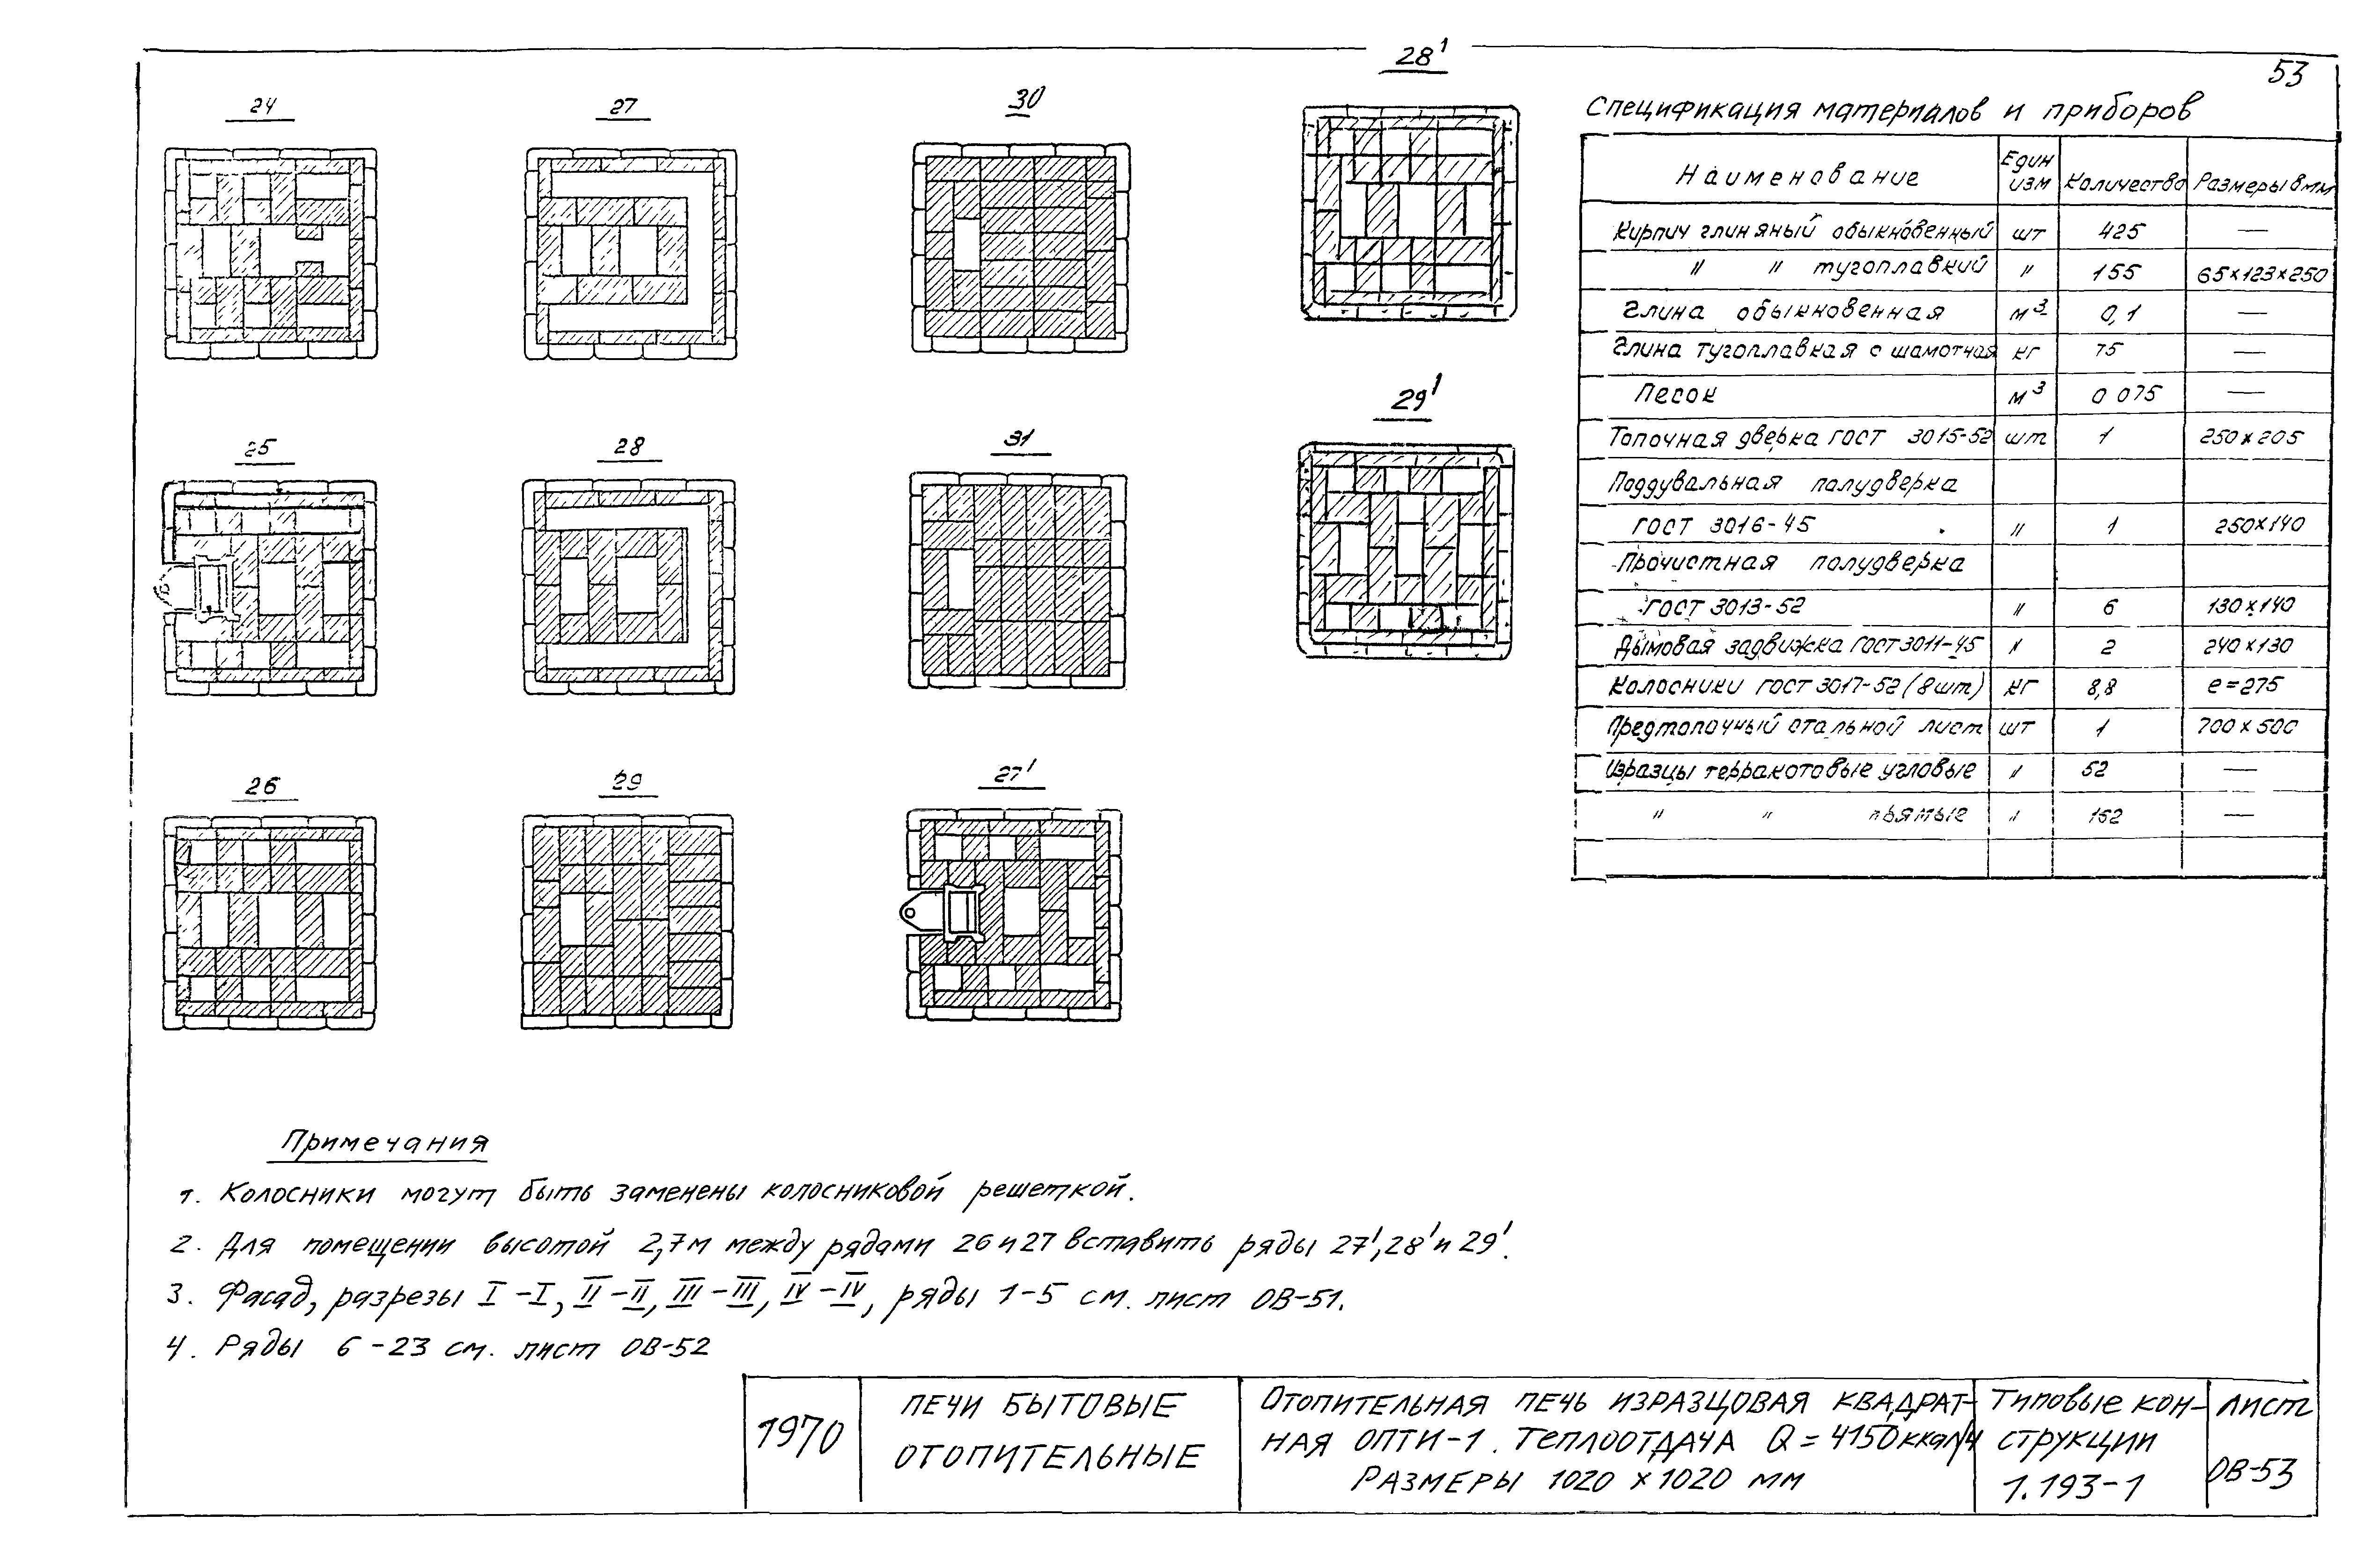 53
24
27
30
28¹
25
28
31
29¹
26
29
27¹
Спецификация материалов и приборов
Наименование Един изм Количество Размеры в мм
Кирпич глиняный обыкновенный шт 425 —
" " тугоплавкий " 155 65×123×250
Глина обыкновенная м³ 0,1 —
Глина тугоплавкая с шамотная кг 75 —
Песок м³ 0 075 —
Топочная дверка ГОСТ 3015-52 шт 1 250×205
Поддувальная полудверка
ГОСТ 3016-45 " 1 250×140
Прочистная полудверка
ГОСТ 3013-52 " 6 130×140
Дымовая задвижка ГОСТ 3011-45 " 2 240×130
Колосники ГОСТ 3017-52 (8шт) кг 8,8 е=275
Предтопочный стальной лист шт 1 700×500
Изразцы терракотовые угловые " 52 —
" " прямые " 152 —
Примечания
1. Колосники могут быть заменены колосниковой решеткой.
2. Для помещении высотой 2,7м между рядами 26 и 27 вставить ряды 27¹, 28¹ и 29¹.
3. Фасад, разрезы I-I, II-II, III-III, IV-IV, ряды 1-5 см. лист ОВ-51.
4. Ряды 6-23 см. лист ОВ-52
1970
ПЕЧИ БЫТОВЫЕ
ОТОПИТЕЛЬНЫЕ
ОТОПИТЕЛЬНАЯ ПЕЧЬ ИЗРАЗЦОВАЯ КВАДРАТ-
НАЯ ОПТИ-1. ТЕПЛООТДАЧА Q = 4150 ккал/ч
РАЗМЕРЫ 1020 × 1020 мм
ТИПОВЫЕ КОН-
СТРУКЦИИ
1.193-1
ЛИСТ
ОВ-53